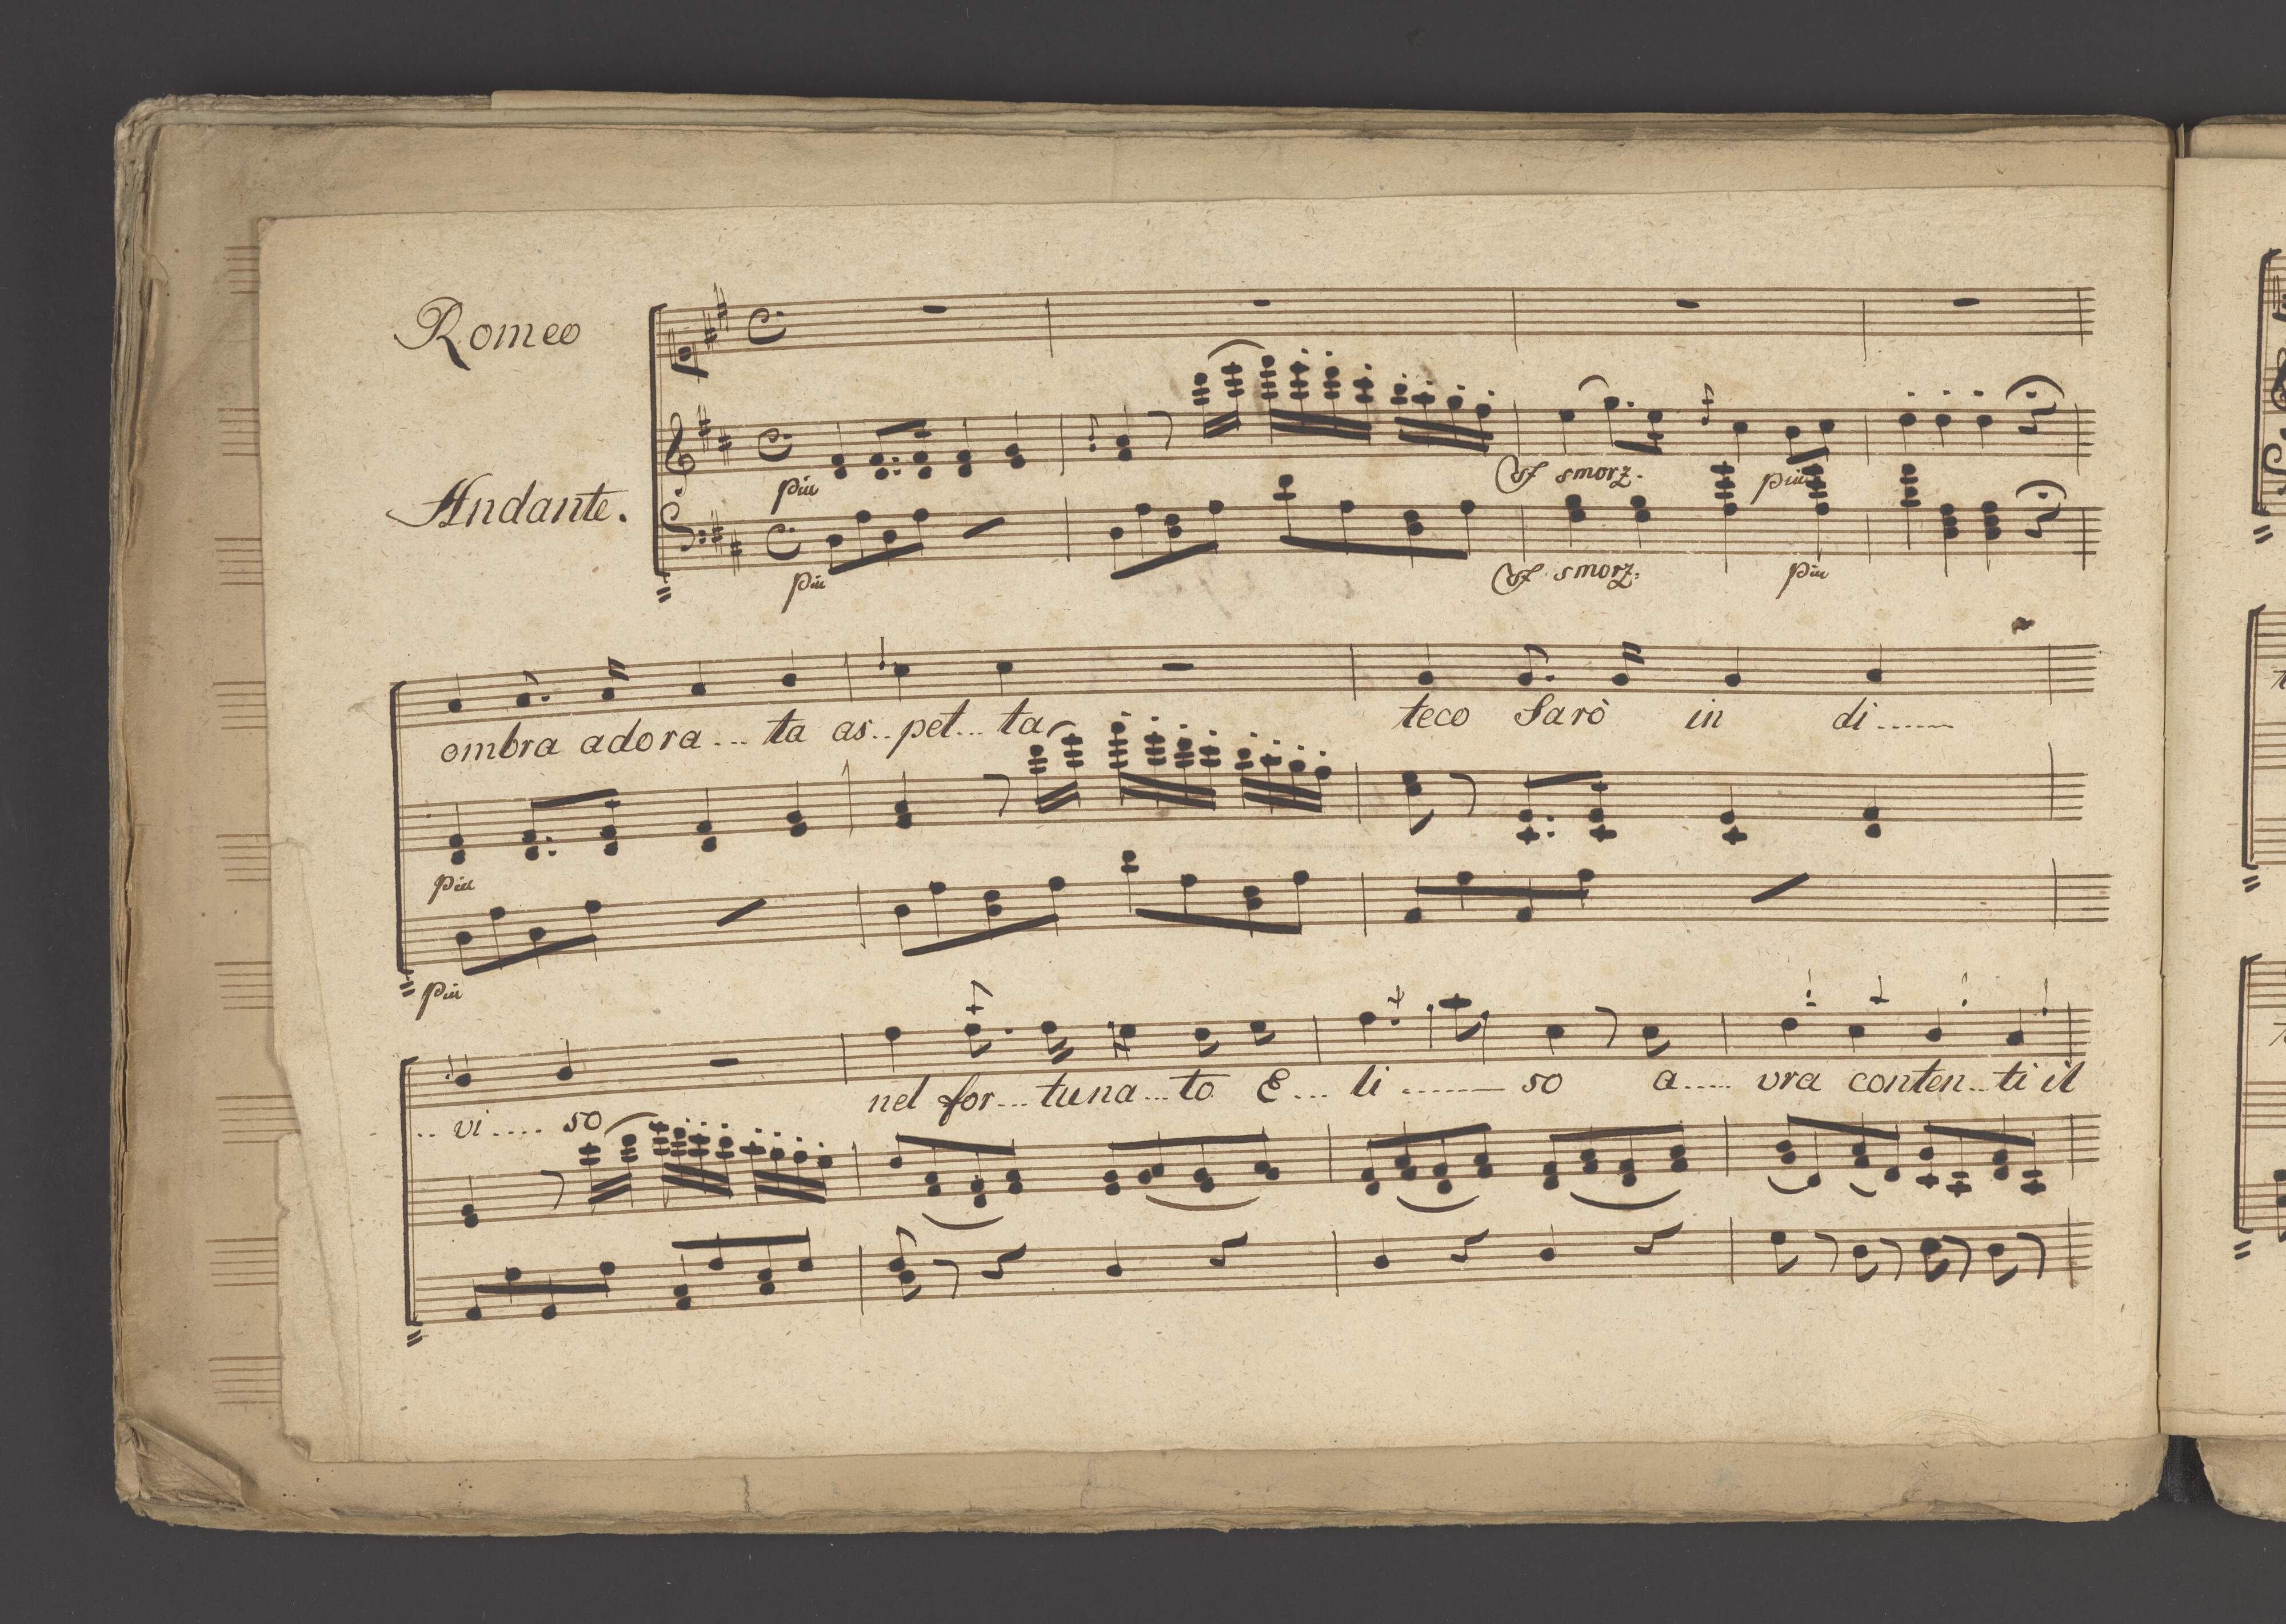 Romeo
Andante.
piu
sf smorz.
piu
piu
sf smorz.
piu
ombra adora... ta as.. pet... ta
teco Sarò in di......
piu
piu
.. vi .... so
nel for... tuna... to E... li ........ so a..... vra conten... ti il